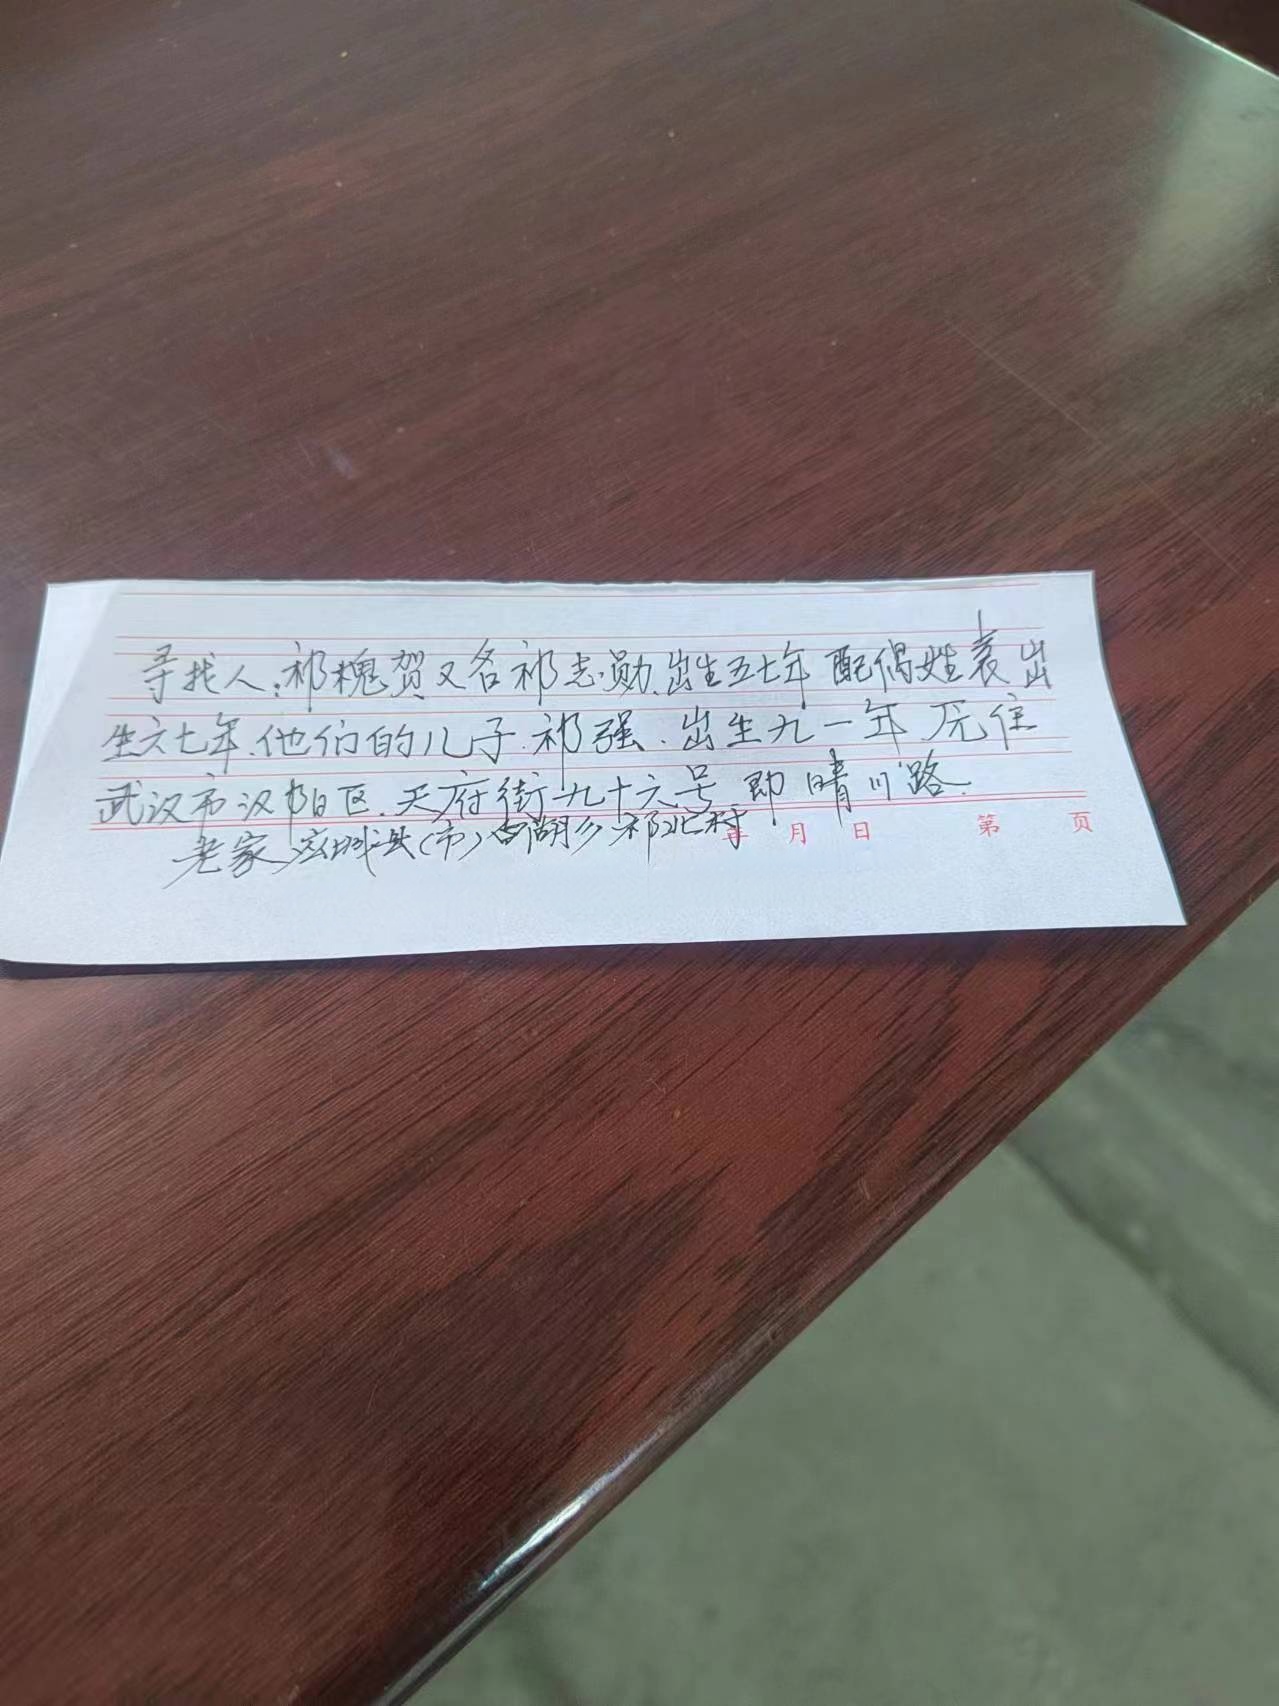 寻找人:祁槐贺又名祁志勋.出生五七年 配偶姓袁出
生六七年.他们的儿子.祁强.出生九一年 原住
武汉市汉阳区.天府街九十六号.即晴川路.
老家应城县(市)湖乡祁北村
年 月 日 第 页